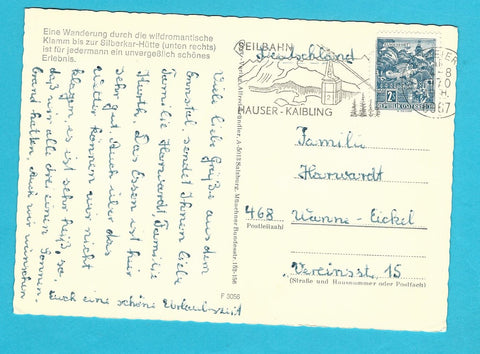 Eine Wanderung durch die wildromantische
Klamm bis zur Silberkar-Hütte (unten rechts)
ist für jedermann ein unvergeßlich schönes
Erlebnis.
Viele liebe Grüße aus dem
Ennstal, sendet Ihnen liebe
Familie Harwardt, Familie
Hurth. Das Essen ist hier
sehr gut. Auch über das
Wetter können wir nicht
klagen, es ist sehr heiß, so
daß wir alle drei einen Sonnen-
brand hatten. Auch wir wünschen
Euch eine schöne Urlaubszeit
F 3056
A-5013 Salzburg, Münchner Bundesstr.
SEILBAHN
HAUSER-KAIBLING
Deutschland
REPUBLIK ÖSTERREICH
Familie
Harwardt
468 Wanne-Eickel
Postleitzahl
Vereinsstr. 15
(Straße und Hausnummer oder Postfach)